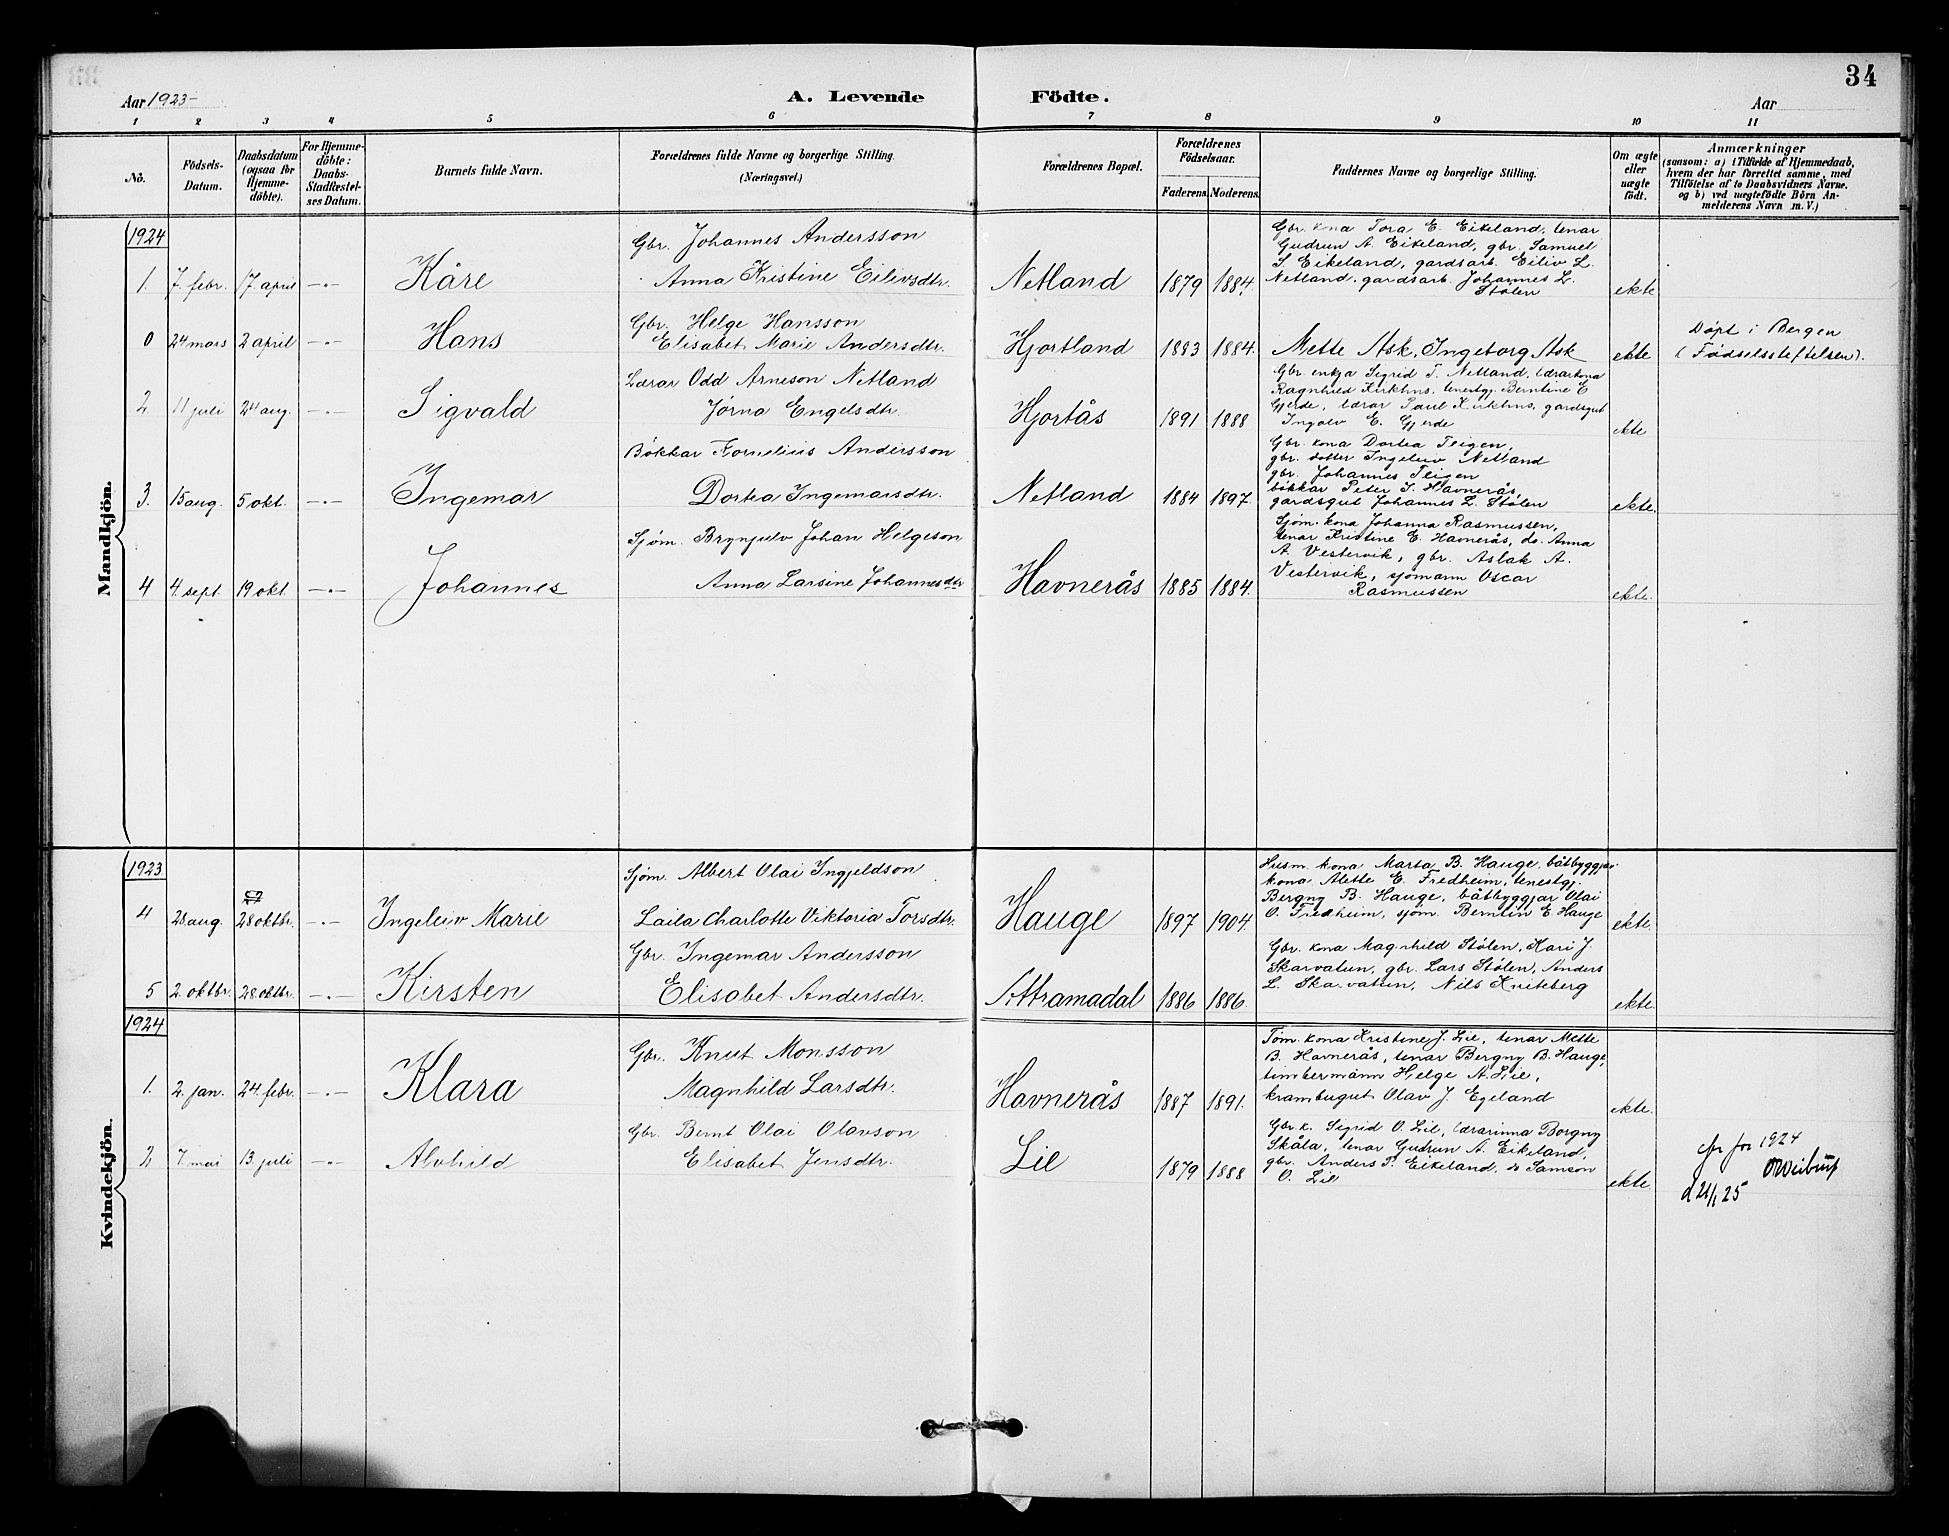 34
Aar 1923-
A. Levende Födte.
Aar
1 2 3 4 5 6 7 8 9 10 11
No.
Födsels-Datum.
Daabsdatum (ogsaa for Hjemme-döbte).
For Hjemme-döbte: Daabs-Stadfæstel-ses Datum.
Barnets fulde Navn.
Forældrenes fulde Navne og borgerlige Stilling.
(Næringsvei.)
Forældrenes Bopæl.
Forældrenes Födselsaar.
Faderens. Moderens.
Faddernes Navne og borgerlige Stilling.
Om ægte eller uægte födt.
Anmærkninger
(saasom: a) i Tilfælde af Hjemmedaab,
hvem der har forrettet samme, med
Tilföielse af to Daabsvidners Navne.
og b) ved uægtefödte Börn An-
melderens Navn m. V.)
Mandkjön.
1924
1. 7. febr. 17. april -"- Kåre
Gbr. Johannes Andersson
Anna Kristine Eilivsdtr.
Netland 1879 1884.
Gbr. kona Tora E. Eikeland, tenar
Gudrun A. Eikeland, gbr. Samuel
S. Eikeland, gardsarb. Eiliv L.
Netland, gardsarb. Johannes L.
Stølen
ekte
0 24 mars 2 april -"- Hans
Gbr. Helge Hansson
Elisabet Marie Andersdtr.
Hjortland 1883 1884.
Mette Ask, Ingeborg Ask
ekte
Døpt i Bergen
(Fødselsstiftelsen).
2 11 juli 24 aug. -"- Sigvald
Lærar Odd Arneson Netland
Jørna Engelsdtr.
Hjortås 1891 1888
Gbr. enkja Sigrid T. Netland, lærarkona
Ragnhild Kirkhus, tenestgj. Berntine E
Gjerde, lærar Paul Kirkhus, gardsgut
Ingolv E. Gjerde
ekte
3. 15 aug. 5 okt. -"- Ingemar
Bøkkar Kornelius Andersson
Dortea Ingemarsdtr.
Netland 1884 1897.
Gbr. kona Dortea Teigen,
gbr. dotter Ingeleiv Netland
gbr. Johannes Teigen
bøkkar Peter S. Havnerås,
gardsgut Johannes L. Stølen
ekte.
4 4. sept. 19 okt. -"- Johannes
Sjøm. Brynjulv Johan Helgeson
Anna Larsine Johannesdtr
Havnerås 1885 1884.
Sjøm. kona Johanna Rasmussen,
tenar Kristine E. Havnerås, do. Anna
A. Vestervik, gbr. Aslak A.
Vestervik, sjømann Oscar
Rasmussen
ekte.
Kvindekjön.
1923
4 28 aug. 28 oktbr. -"- Ingeleiv Marie
Sjøm. Albert Olai Ingjeldson
Laila Charlotte Viktoria Torsdtr.
Hauge 1897 1904.
Husm. kona Marta B. Hauge, båtbyggjar-
kona Alette E. Fredheim, tenestgj.
Bergny B. Hauge, båtbyggjar Olai
O. Fredheim, sjøm. Berntin E. Hauge
ekte.
5 2. oktbr. 28. oktbr. -"- Kirsten
Gbr. Ingemar Andersson
Elisabet Andersdtr.
Attramadal 1886 1886.
Gbr. kona Magnhild Stølen, Kari J.
Skarvatun, gbr. Lars Stølen, Anders
L. Skarvatun, Nils Kviteberg
ekte.
1924
1. 2. jan. 24. febr. -"- Klara
Gbr. Knut Monsson
Magnhild Larsdtr.
Havnerås 1887 1891.
Tøm. kona Kristine J. Lie, tenar Mette
B. Havnerås, tenar Bergny B. Hauge,
timbermann Helge A. Lie,
krambugut Olav J. Egeland
ekte.
2 7. mai 13. juli -"- Alvhild
Gbr. Bernt Olai Olavson
Elisabet Jensdtr.
Lie 1879 1888
Gbr. k. Sigrid O. Lie, lærarinna Borgny
Skåla, tenar Gudrun A. Eikeland,
gbr. Anders P. Eikeland, do Samson
O. Lie
ekte.
for 1924
d 21/1 25